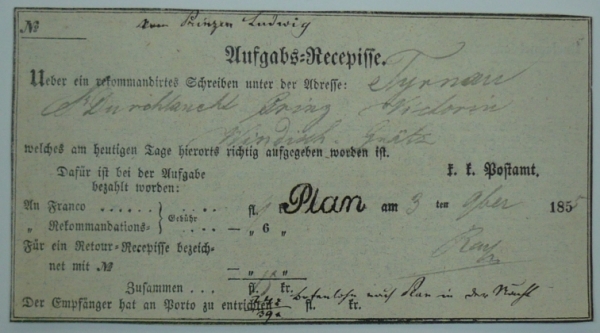 № vom Prinzen Ludwig
Aufgabs-Recepisse.
Ueber ein rekommandirtes Schreiben unter der Adresse: Tyrnau
Sr Durchlaucht Prinz Victorin
Windisch Grätz
welches am heutigen Tage hierorts richtig aufgegeben worden ist.
Dafür ist bei der Aufgabe
bezahlt worden:
k. k. Postamt.
An Franco . . . . . . . . . . fl. 9 kr.
Plan am 3 ten 9ber 1855
„ Rekommandations- Gebühr . . . . — „ 6 „
Für ein Retour-Recepisse bezeich-
net mit № — „ „
Zusammen . . . fl. kr.
Botenlohn nach Plan in der Nacht
Der Empfänger hat an Porto zu entrichten fl. kr.